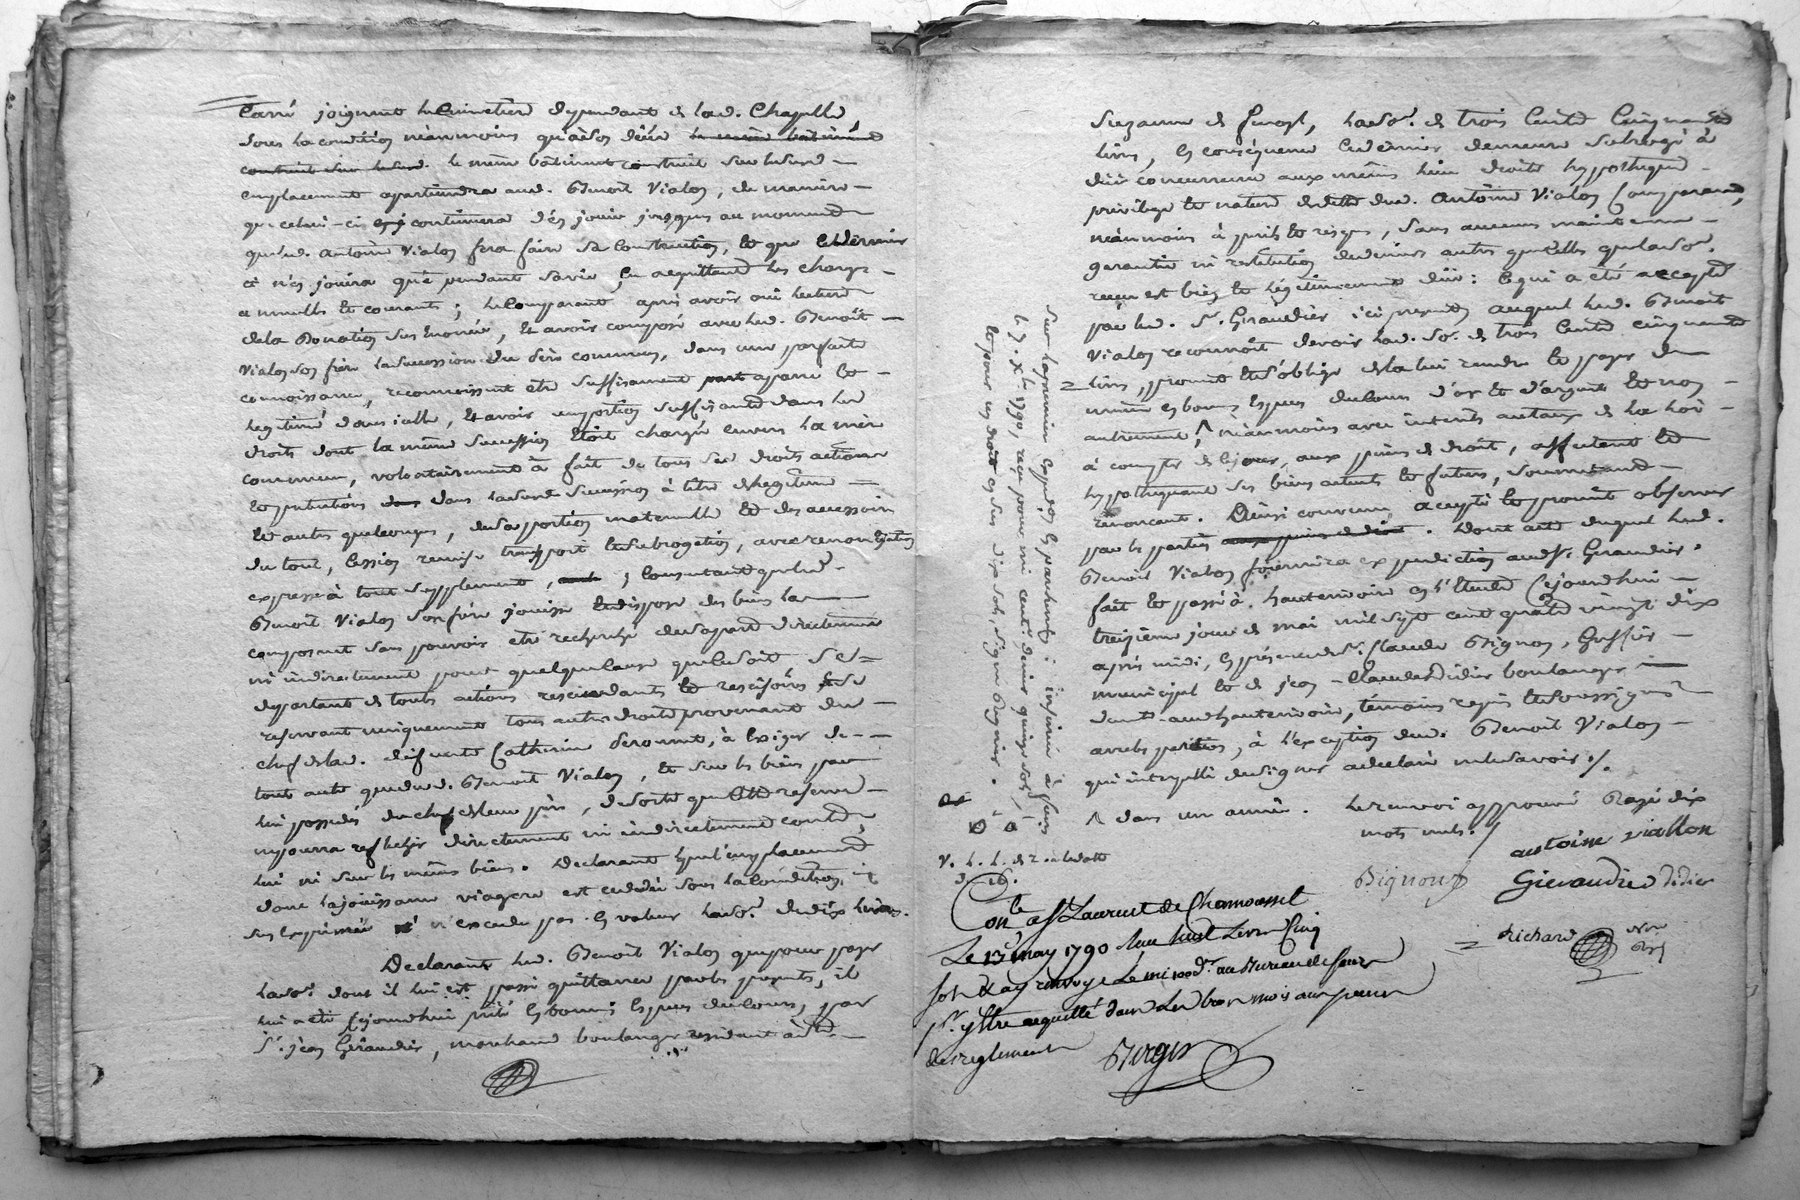 Carré joignant le Cimetiere dependant de lad. Chapelle,
sous la condition néanmoins qu'à son décès le même bâtiment
construit sur led. le même bâtiment construit sur led.
emplacement apartiendra aud. Benoit Vialon, de maniere
que celui-ci continuera d'en jouir jusques au moment
que led. Antoine Vialon fera faire sa construction, et que ce dernier
n'en jouira que pendant sa vie, en acquittant les charges
annuelles et courants; le Comparant après avoir oui lecture
de la Donation sus énoncée, et avoir composé avec led. Benoît
Vialon son frère la succession du père commun, dans une parfaite
connoissance, reconnoissant être suffisament apané et
legitimé dans icelle, et avoir une portion suffisante dans les
droits dont la même succession étoit chargée envers la mère
commune, volontairement à fait de tous ses droits actions
et prétentions dans lad. succession à titre de legitime
et autres quelconques, de sa portion maternelle et des accessoires
du tout, Cession remise transport et subrogation, avec renonciation
expresse à tout supplement, consentant que led.
Benoit Vialon son frère jouisse et dispose des biens la
composant sans pouvoir être recherché de sa part directement
ni indirectement pour quelque cause que ce soit, se
departant de toutes actions rescindants et rescisoires se
reservant uniquement tous autres droits provenant du
chef de lad. défunte Catherine, à exiger de
tout autre que dud. Benoit Vialon, et sur les biens par
lui possédés du chef de leur père, de sorte que cette reserve
ne pourra reflechir directement ni indirectement contre
lui ni sur les mêmes biens. Declarant que l'emplacement
dont la jouissance viagere est cedée sous la condition ci
sus exprimée n'excede pas en valeur la so.e de dix livres.
Declarant led. Benoit Vialon que pour payer
la so.e dont il lui est passé quittance par les presentes, il
lui a été cejourdhui prêté en bonnes especes de cours, par
S.r jean Giraudier, marchand boulanger residant à St.
Suzanne de, la so.e de trois Cents Cinquante
livres, en consequence ce dernier demeure subrogé à
due concurrence aux mêmes lieu droits hypotheque
privilege et nature de dette dud. Antoine Vialon Comparant,
néanmoins à perils et risques, sans aucune maintenue
garantie ni restitution de deniers autres que celles que la so.e
reçue est bien et legitimement due: Ce qui a été accepté
par led. S.r Giraudier ici present, auquel led. Benoit
Vialon reconnoît devoir lad. so.e de trois Cents cinquante
livres, promet et s'oblige de la lui rendre et payer de
même en bonnes especes du cours d'or et d'argent et non
autrement, néanmoins avec interêts au taux de la loi
à compter de ce jour, aux peines de droit, affectant et
hypothequant ses biens actuels et futurs, soumettant
renonçant. Ainsi convenu, accepté et promit observer
par les parties aux peines de droit. Dont acte duquel led.
Benoit Vialon fournira expedition aud. S.r Giraudier.
fait et passé à hauterivoire en l'Etude Cejourdhui
treizieme jour de mai mil sept cent quatre vingt dix
après midi, en presence de S.r Claude Bignon, Greffier
municipal et de jean-Claude Didier boulanger
dem.t aud. hauterivoire, témoins requis et soussignés
avec les parties, à l'exception dud. Benoit Vialon
qui interpellé de signer a declaré ne le savoir./.
^ dans une année. Le renvoi approuvé Rayé dix
mots nuls.
antoine viallon
Bignon Gieraudier Didier
Richard
V. L. L. et 2.
Con.lé a St Laurent de Chamousset
Le 13 may 1790 Reçu huit Livres Cinq
sols & ay renvoyé Le mi au Bureau de feurs
p.r y Etre acquitté dans Les trois mois aux peines
de reglement Berger
Sur la premiere expedition en parchemin: insinué à feurs
le 7. X.bre 1790, reçu pour mi cent.e denier quinze sols,
et pour ces droits en sus dix sols, signé.